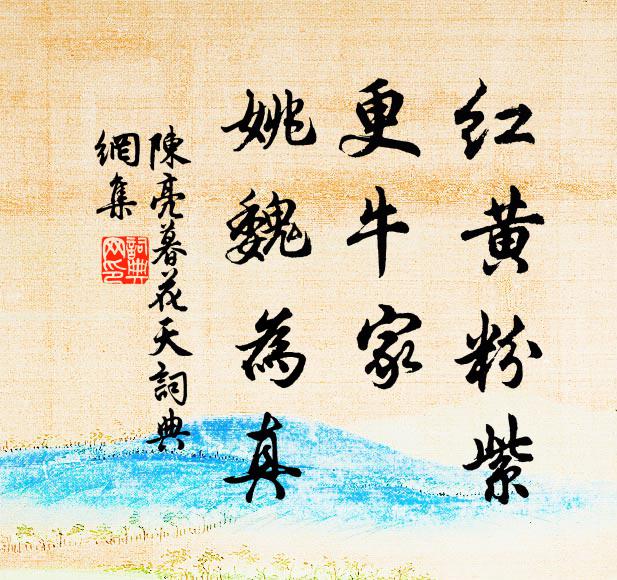 红黄粉紫
更牛家
姚魏為真
陳亮暮花天詞典
網集
詞典
网印